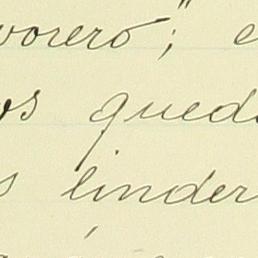 vorero"; e
os queda
s linder